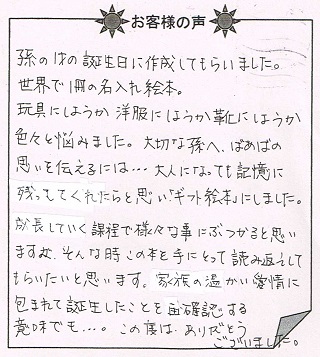 お客様の声
孫の1才の誕生日に作成してもらいました。
世界で1冊の名入れ絵本。
玩具にしようか 洋服にしようか 靴にしようか
色々と悩みました。大切な孫へ、ばぁばの
思いを伝えるには…大人になっても記憶に
残ってくれたらと思い「ギフト絵本」にしました。
成長していく課程で様々な事にぶつかると思い
ますが、そんな時この本を手にとって読み返して
もらいたいと思います。家族の温かい愛情に
包まれて誕生したことを再確認する
意味でも…。この度は、ありがとう
ございました。